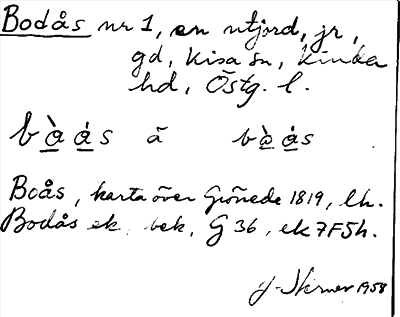 Bodås nr 1, en utjord, jr,
gd, Kisa sn, Kinda
hd, Östg. l.
bòå̀s ä bòås
Boås, karta över Grönede 1819, lh.
Bodås ek. bek, G 36, ek 7F5h.
1958